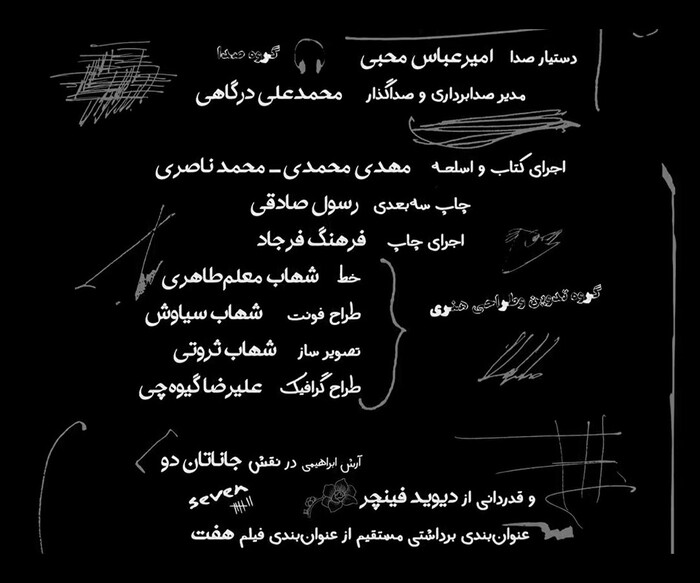 گروه صدا
دستیار صدا امیرعباس محبی
مدیر صدابرداری و صداگذار محمدعلی درگاهی
اجرای کتاب و اسلحه مهدی محمدی ـ محمد ناصری
چاپ سه‌بعدی رسول صادقی
اجرای چاپ فرهنگ فرجاد
گروه تدوین و طراحی هنری
خط شهاب معلم‌طاهری
طراح فونت شهاب سیاوش
تصویر ساز شهاب ثروتی
طراح گرافیک علیرضا گیوه‌چی
آرش ابراهیمی در نقش جاناتان دو
و قدردانی از دیوید فینچر
seven
عنوان‌بندی برداشتی مستقیم از عنوان‌بندی فیلم هفت